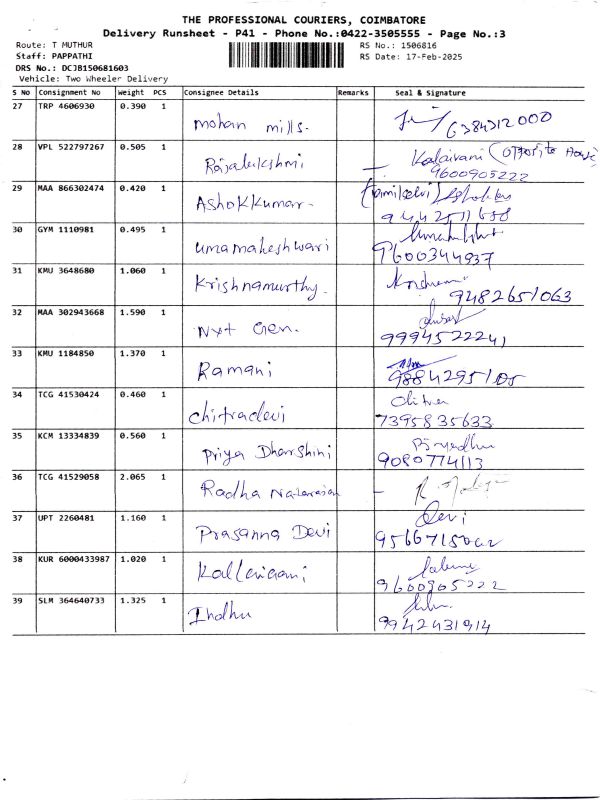 THE PROFESSIONAL COURIERS, COIMBATORE
Delivery Runsheet - P41 - Phone No.:0422-3505555 - Page No.:3
Route: T MUTHUR RS No.: 1506816
Staff: PAPPATHI RS Date: 17-Feb-2025
DRS No.: DCJB150681603
Vehicle: Two Wheeler Delivery
S No Consignment No Weight PCS Consignee Details Remarks Seal & Signature
27 TRP 4606930 0.390 1
mohan mills. 6384312000
28 VPL 522797267 0.505 1 Kalaivani (opposite House
Rajalukshmi 9600905222
29 MAA 866302474 0.420 1 (Tamilselvi)
AshokKumar 9442511688
30 GYM 1110981 0.495 1
umamaheshwari 9600344937
31 KMU 3648680 1.060 1
Krishnamurthy. 9482651063
32 MAA 302943668 1.590 1
Nxt Gen. 9994522241
33 KMU 1184850 1.370 1
Ramani 9884295105
34 TCG 41530424 0.460 1
chitradevi 7395835633
35 KCM 13334839 0.560 1
Priya Dharshini 9080774113
36 TCG 41529058 2.065 1
Radha Natarajan
37 UPT 2260481 1.160 1 Devi
Prasanna Devi 9566715002
38 KUR 6000433987 1.020 1
9600905222
39 SLM 364640733 1.325 1
Indhu 9942431914